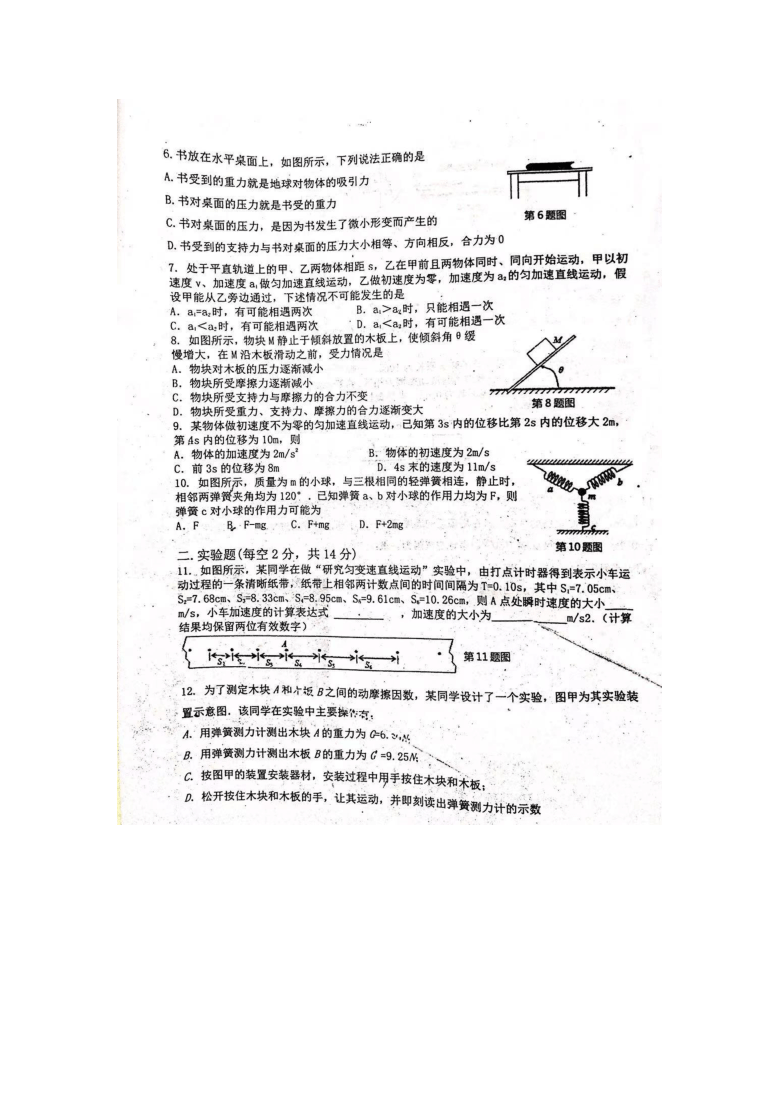 6.书放在水平桌面上，如图所示，下列说法正确的是
A.书受到的重力就是地球对物体的吸引力
B.书对桌面的压力就是书受的重力
C.书对桌面的压力，是因为书发生了微小形变而产生的
D.书受到的支持力与书对桌面的压力大小相等、方向相反，合力为0
第6题图
7．处于平直轨道上的甲、乙两物体相距 s，乙在甲前且两物体同时、同向开始运动，甲以初
速度 v、加速度 a₁做匀加速直线运动，乙做初速度为零，加速度为 a₂的匀加速直线运动，假
设甲能从乙旁边通过，下述情况不可能发生的是
A．a₁=a₂时，有可能相遇两次 B．a₁＞a₂时，只能相遇一次
C．a₁＜a₂时，有可能相遇两次 D．a₁＜a₂时，有可能相遇一次
8．如图所示，物块 M 静止于倾斜放置的木板上，使倾斜角 θ 缓
慢增大，在 M 沿木板滑动之前，受力情况是
A．物块对木板的压力逐渐减小
B．物块所受摩擦力逐渐减小
C．物块所受支持力与摩擦力的合力不变
D．物块所受重力、支持力、摩擦力的合力逐渐变大
M
θ
第8题图
9．某物体做初速度不为零的匀加速直线运动，已知第 3s 内的位移比第 2s 内的位移大 2m，
第 4s 内的位移为 10m，则
A．物体的加速度为 2m/s² B．物体的初速度为 2m/s
C．前 3s 的位移为 8m D．4s 末的速度为 11m/s
10．如图所示，质量为 m 的小球，与三根相同的轻弹簧相连，静止时，
相邻两弹簧夹角均为 120°．已知弹簧 a、b 对小球的作用力均为 F，则
弹簧 c 对小球的作用力可能为
A．F B．F-mg C．F+mg D．F+2mg
a
b
m
c
第10题图
二.实验题(每空 2 分，共 14 分)
11．如图所示，某同学在做“研究匀变速直线运动”实验中，由打点计时器得到表示小车运
动过程的一条清晰纸带，纸带上相邻两计数点间的时间间隔为 T=0.10s，其中 S₁=7.05cm、
S₂=7.68cm、S₃=8.33cm、S₄=8.95cm、S₅=9.61cm、S₆=10.26cm，则 A 点处瞬时速度的大小____
m/s，小车加速度的计算表达式 ________，加速度的大小为________m/s2．（计算
结果均保留两位有效数字）
A
S₁ S₃ S₄ S₅ S₆
第11题图
12．为了测定木块 A 和木板 B 之间的动摩擦因数，某同学设计了一个实验，图甲为其实验装
置示意图．该同学在实验中主要操作有：
A．用弹簧测力计测出木块 A 的重力为 G=6.
B．用弹簧测力计测出木板 B 的重力为 G′=9.25N；
C．按图甲的装置安装器材，安装过程中用手按住木块和木板；
D．松开按住木块和木板的手，让其运动，并即刻读出弹簧测力计的示数